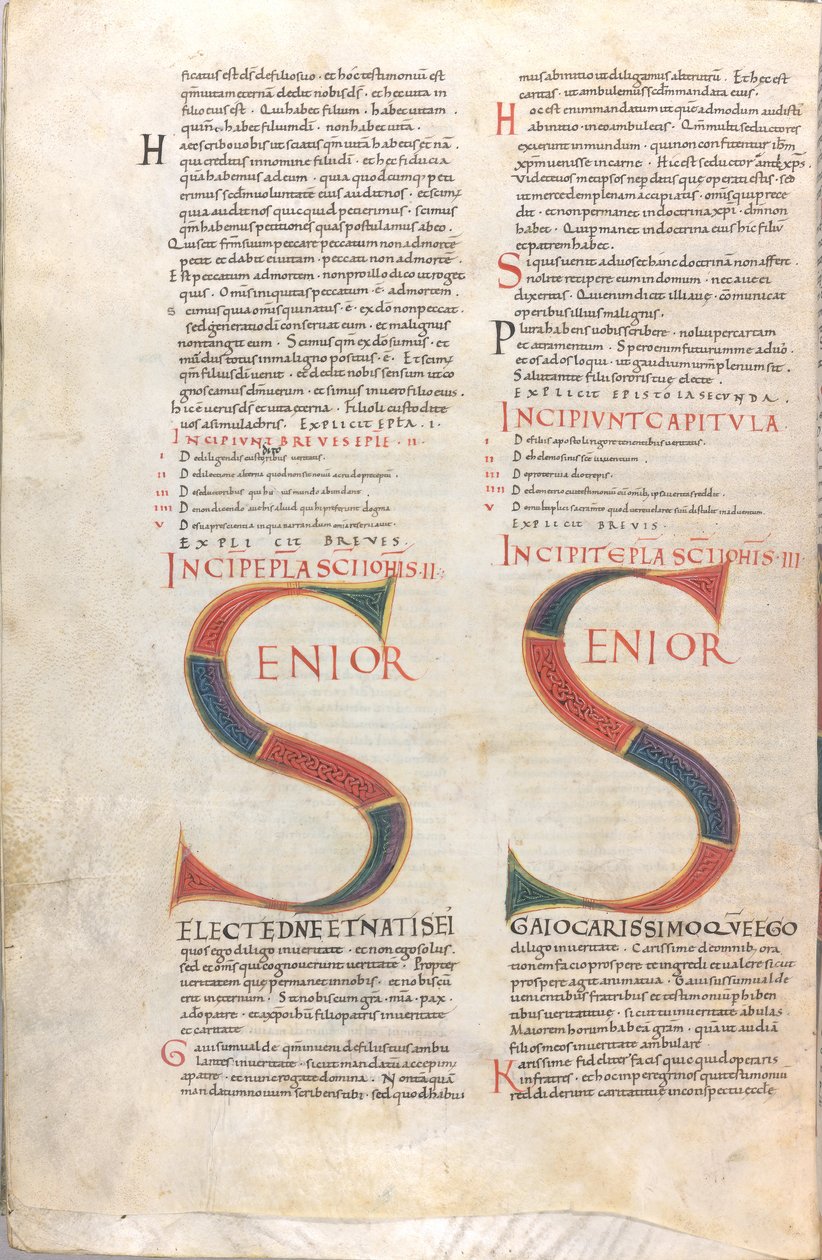 ficatus est ds de filio suo · et hoc testimoniū est
qm̄ uitam eternā dedit nobis ds̄ · et hec uita in
filio eius est · Qui habet filium · habet uitam ·
qui nc̄ habet filium di · non habet uitā ·
Haec scribo uobis ut sciatis qm̄ uitā habetis et̄nā ·
qui creditis in nomine filii di · et hec fiducia
quā habemus ad eum · quia quodcumq; peti
erimus scdm uoluntatē eius audit nos · et scim;
quia audit nos quicquid petierimus · scimus
qm̄ habemus petitiones quas postulamus ab eo ·
Qui scit frm̄ suum peccare peccatum non ad mortē
petit et dabit ei uitam · peccati non ad mortē ·
Est peccatum ad mortem · non pro illo dico ut roget
quis · Omīs iniquitas peccatum · ē · ad mortem ·
scimus quia omīs qui natus · ē · ex dō non peccat ·
sed generatio di conseruat eum · et malignus
non tangit eum · Scimus qm̄ ex dō sumus · et
mūdus totus in maligno positus · ē · Et scim;
qm̄ filius di uenit · et dedit nobis sensum ut co
gnoscamus dm̄ uerum · et simus in uero filio eius ·
hic ē uerus ds̄ et uita eterna · Filioli custodite
uos a simulachris · EXPLICIT EPL̄A · I ·
INCIPIUNT BREVES EPL̄E · II ·
I De diligendis cultoribus ueritatis ·
II De dilectione alterna quod non sit nouū
III De seductoribus qui hu ius mundo abundant ·
IIII De non dicendo aue his aliud qui hi preferunt dogma
V De sua prescientia in qua
EXPLICIT BREVES ·
INCIP̄ EPL̄A SC̄I IOH̄IS · II ·
SENIOR
ELECTE DNE ET NATIS EI
quos ego diligo in ueritate · et non ego solus ·
sed et om̄s qui cognouerunt ueritatē · Propter
ueritatem que permanet in nobis · et nobiscū
erit in eternum · Sit nobiscum gr̄a · mīa · pax ·
a dō patre · et a xp̄o ihū filio patris in ueritate
et caritate
Gauisus ualde · qm̄ inueni de filiis tuis ambu
lantes in ueritate · sicut mandatū accepim;
a patre · et nunc rogo te domina · Non tā quā
mandatum nouum scribens tibi · sed quod habui
mus ab initio ut diligamus alterutrū · Et hec est
caritas · ut ambulemus scdm mandata eius ·
Hoc est enim mandatum ut quē admodum audisti
ab initio · in eo ambuletis · Qm̄ multi seductores
exierunt in mundum · qui non confitentur ihm̄
xpm̄ uenisse in carne · Hic est seductor antixp̄s ·
Videte uos metipsos ne perdatis que operati estis · sed
ut mercedem plenam accipiatis · omīs qui prece
dit · et non permanet in doctrina xp̄i · dm̄ non
habet · Qui p̄manet in doctrina eius hic filiū
et patrem habet ·
Si quis uenit ad uos et hanc doctrinā non affert ·
nolite recipere eum in domum · nec aue ei
dixeritis · Qui enim dicit illi aue · cōmunicat
operibus illius malignis ·
Plura habens uobis scribere · nolui per cartam
et atramentum · Spero enim futurum me ad uo ·
et os ad os loqui · ut gaudium urm̄ plenum sit ·
Salutant te filii sororis tue electe ·
EXPLICIT EPISTOLA SECUNDA ·
INCIPIUNT CAPITULA ·
I De filiis apostoli rigore tenentibus ueritatis ·
II De helemosinis
III De proteruia diotrepis ·
IIII De demetrio cui testimoniū cū om̄ib; ipsa ueritas reddit ·
V De multiplici sacramto quod
EXPLICIT BREVIS ·
INCIPIT EPL̄A SC̄I IOH̄IS · III ·
SENIOR
GAIO CARISSIMO QVĒ EGO
diligo in ueritate · Carissime de omnib; ora
tionem facio prospere te ingredi et ualere sicut
prospere agit anima tua · Gauisus sum ualde
uenientibus fratribus et testimoniū phiben
tibus ueritati tue · sicut tu in ueritate ābulas ·
Maiorem horum habeā gram̄ · quā ut audiā
filios meos in ueritate ambulare ·
Karissime fideliter facis quicquid operaris
in fratres · et hoc in peregrinos qui testimoniū
reddiderunt caritati tue in conspectu eccl̄e